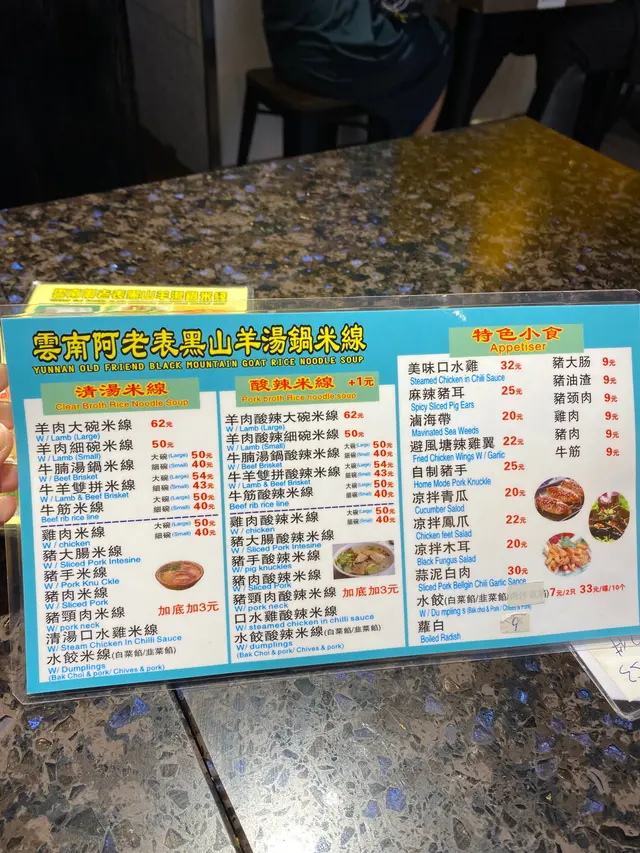 雲南阿老表黑山羊湯鍋米線
YUNNAN OLD FRIEND BLACK MOUNTAIN GOAT RICE NOODLE SOUP
清湯米線
Clear Broth Rice Noodle Soup
羊肉大碗米線 62元
W / Lamb (Large)
羊肉細碗米線 50元
W / Lamb (Small)
牛腩湯鍋米線 大碗(Large) 50元
W / Beef Brisket 細碗(Small) 40元
牛羊雙拼米線 大碗(Large) 54元
W / Lamb & Beef Brisket 細碗(Small) 43元
牛筋米線 大碗(Large) 50元
Beef rib rice line 細碗(Small) 40元
雞肉米線 大碗(Large) 50元
W / chicken 細碗(Small) 40元
豬大腸米線
W / Sliced Pork Intesine
豬手米線
W / Pork Knu Ckle
豬肉米線
W / Sliced Pork
豬頸肉米線 加底加3元
W/ pork neck
清湯口水雞米線
W/ Steam Chicken In Chilli Sauce
水餃米線(白菜餡/韭菜餡)
W/ Dumplings
(Bak Choi & pork/ Chives & pork)
酸辣米線 +1元
Pork broth Rice Noodle Soup
羊肉酸辣大碗米線 62元
W / Lamb (Large)
羊肉酸辣細碗米線 50元
W / Lamb (Small)
牛腩湯鍋酸辣米線 大碗(Large) 50元
W / Beef Brisket 細碗(Small) 40元
牛羊雙拼酸辣米線 大碗(Large) 54元
W / Lamb & Beef Brisket 細碗(Small) 43元
牛筋酸辣米線 大碗(Large) 50元
Beef rib rice line 細碗(Small) 40元
雞肉酸辣米線 大碗(Large) 50元
W / chicken 細碗(Small) 40元
豬大腸酸辣米線
W / Sliced Pork Intesine
豬手酸辣米線
W/ pig knuckles
豬肉酸辣米線
W / Sliced Pork
豬頸肉酸辣米線 加底加3元
W/ pork neck
口水雞酸辣米線
W/ steamed chicken in chilli sauce
水餃酸辣米線(白菜餡/韭菜餡)
W/ dumplings
(Bak Choi & pork/ Chives & pork)
特色小食
Appetiser
美味口水雞 32元
Steamed Chicken in Chili Sauce
麻辣豬耳 25元
Spicy Sliced Pig Ears
滷海帶 20元
Mavinated Sea Weeds
避風塘辣雞翼 22元
Fried Chicken Wings W / Garlic
自制豬手 25元
Home Mode Pork Knuckle
凉拌青瓜 20元
Cucumber Salod
凉拌鳳爪 22元
Chicken feet Salad
凉拌木耳 20元
Black Fungus Salad
蒜泥白肉 30元
Sliced Pork Bellgin Chili Garlic Sance
水餃(白菜餡/韭菜餡) 7元/2只 33元/碟/10个
蘿白 9
Boiled Radish
豬大腸 9元
豬油渣 9元
豬頸肉 9元
雞肉 9元
豬肉 9元
牛筋 9元